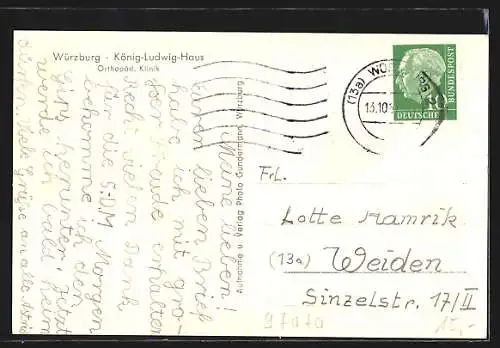 Würzburg - König-Ludwig-Haus
Orthopäd. Klinik
Meine lieben!
Euren lieben Brief
habe ich mit gro-
ßer Freude erhalten
Recht vielen Dank
für die 5.-DM. Morgen
bekomme ich den
Gips herunter. Jetzt
werde ich bald heim
dürfen. Viele Grüße an alle
Aufnahme u. Verlag Photo Gundermann, Würzburg
(13a) WÜ
13.10
10
DEUTSCHE
BUNDESPOST
Frl.
Lotte Mamrik
(13a) Weiden
Sinzelstr. 17/II
15,-